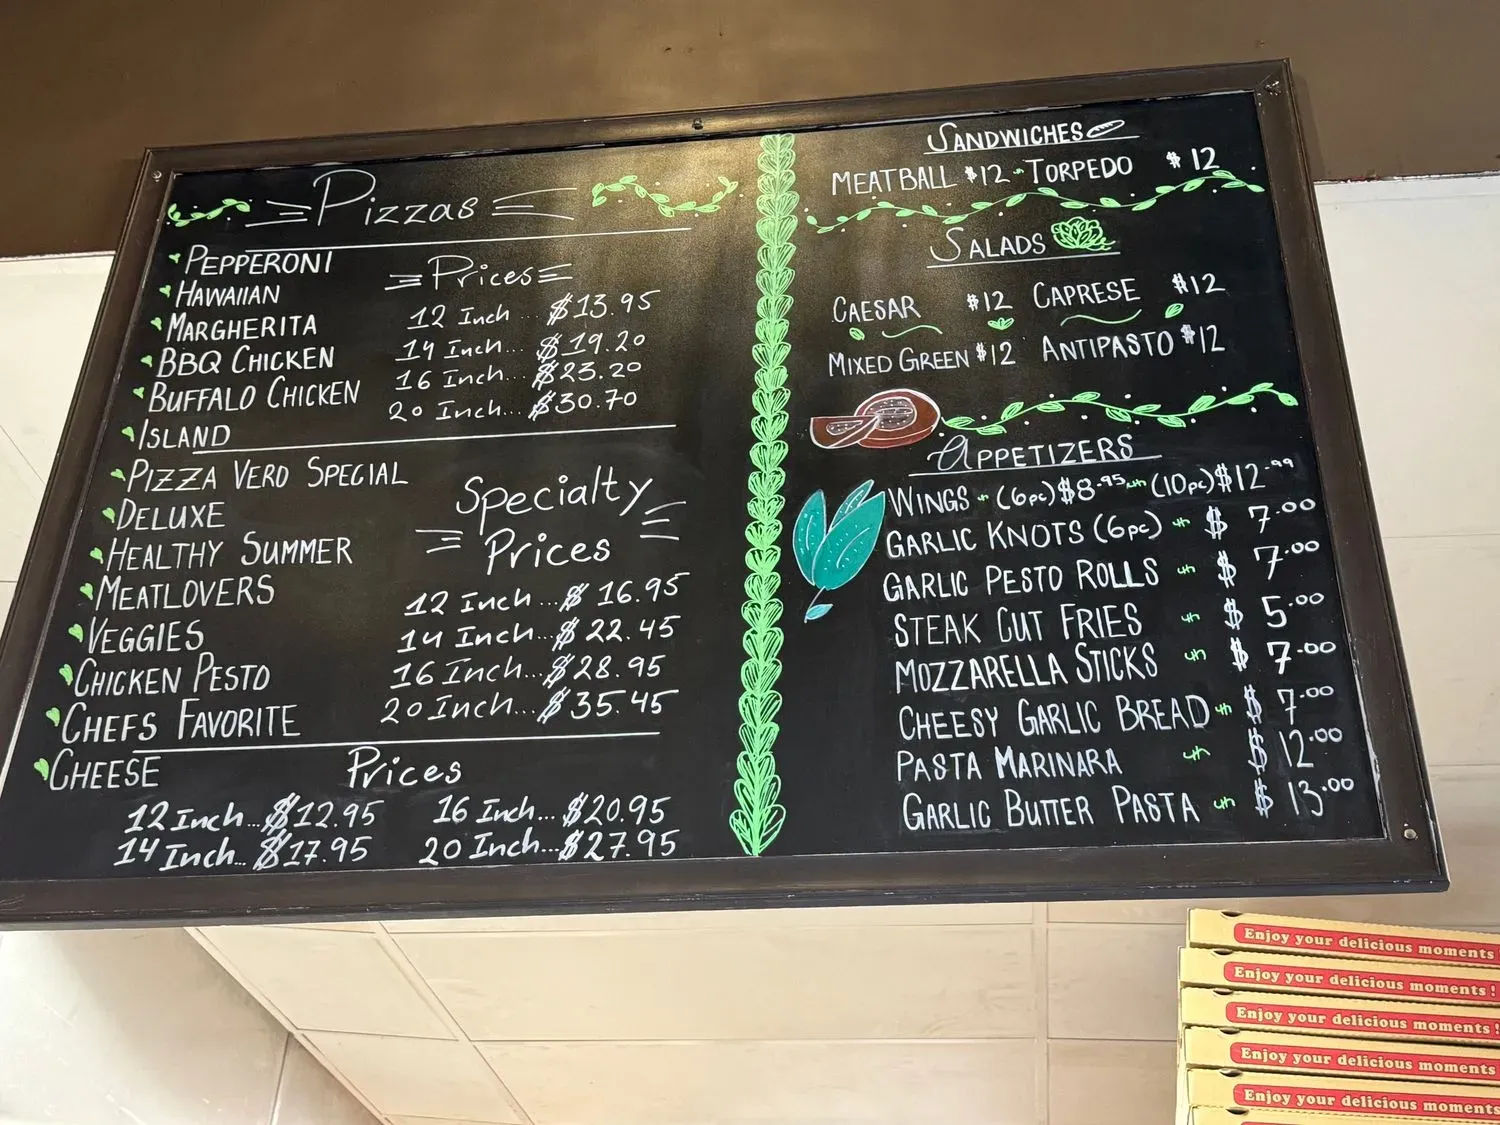 Pizzas
PEPPERONI
HAWAIIAN
MARGHERITA
BBQ CHICKEN
BUFFALO CHICKEN
ISLAND
Prices
12 Inch... $13.95
14 Inch... $19.20
16 Inch... $23.20
20 Inch... $30.70
PIZZA VERO SPECIAL
DELUXE
HEALTHY SUMMER
MEATLOVERS
VEGGIES
CHICKEN PESTO
CHEFS FAVORITE
Specialty
Prices
12 Inch...$ 16.95
14 Inch...$ 22.45
16 Inch...$28.95
20 Inch...$35.45
CHEESE
Prices
12 Inch...$12.95 16 Inch...$20.95
14 Inch...$17.95 20 Inch...$27.95
SANDWICHES
MEATBALL $12 - TORPEDO $12
SALADS
CAESAR $12 CAPRESE $12
MIXED GREEN $12 ANTIPASTO $12
APPETIZERS
WINGS (6pc) $8.95 (10pc) $12.99
GARLIC KNOTS (6pc) $ 7.00
GARLIC PESTO ROLLS $ 7.00
STEAK CUT FRIES $ 5.00
MOZZARELLA STICKS $ 7.00
CHEESY GARLIC BREAD $ 7.00
PASTA MARINARA $ 12.00
GARLIC BUTTER PASTA $ 13.00
Enjoy your delicious moments
Enjoy your delicious moments !
Enjoy your delicious moments !
Enjoy your delicious moments
Enjoy your delicious moments